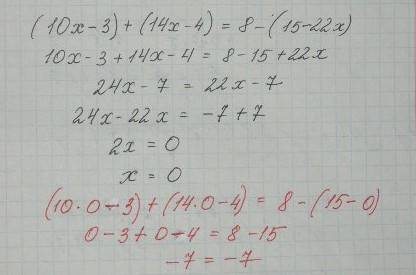 (10x-3)+(14x-4) = 8-(15-22x)
10x-3+14x-4 = 8-15+22x
24x-7 = 22x-7
24x-22x = -7+7
2x = 0
x = 0
(10·0-3)+(14·0-4) = 8-(15-0)
0-3+0-4 = 8-15
-7 = -7